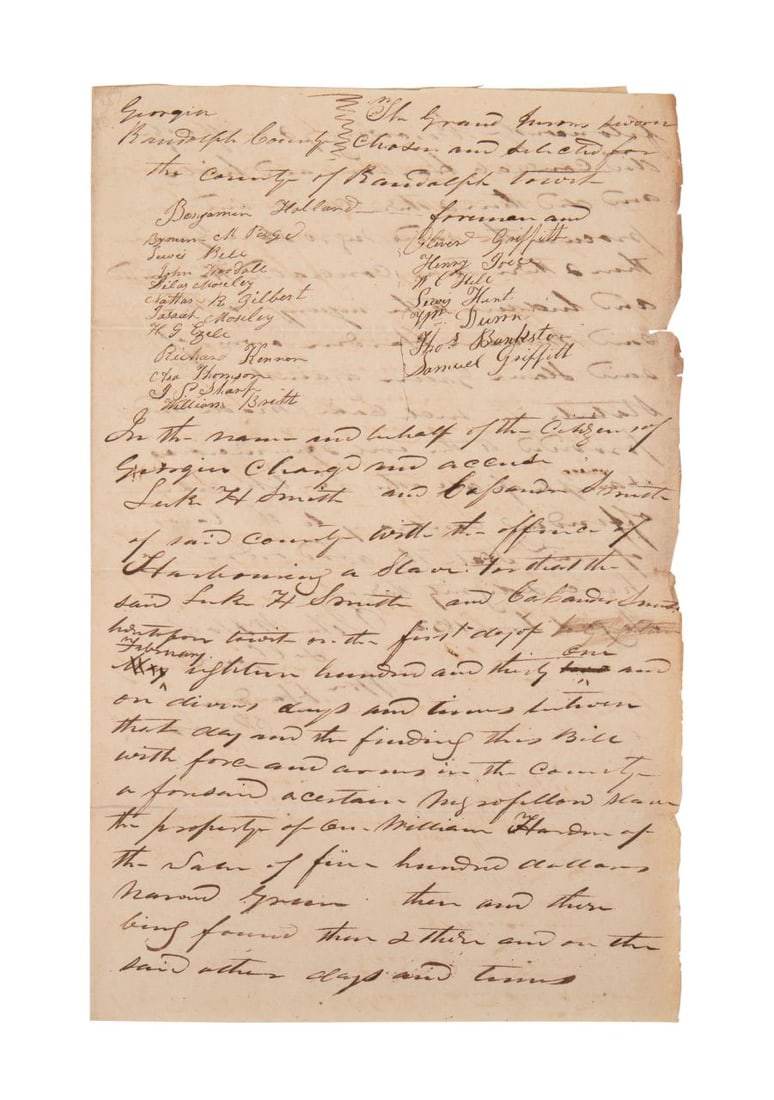 Georgia The Grand Jurors sworn
Randolph County Chosen and selected for
the County of Randolph towit
Benjamin Holland foreman and
Brown M Page
Lewis Bell
John Woodall
Silas Moseley
R Gilbert
Moseley
H G Ezell
Richard Kennon
Thomson
J S Sharp
William
Oliver Griffitt
Henry
W C Hill
Lewis Hunt
Wm Dunn
Thos Bankston
Samuel Griffitt
In the name and behalf of the Citizens of
Georgia Charge and accuse
Luke H Smith and Cassander Smith
of said County with the offence of
Harbouring a Slave. For that the
said Luke H Smith and Cassander Smith
towit on the first day of
February eighteen hundred and thirty One and
on divers days and times between
that day and the finding this Bill
with force and arms in the County
a foresaid a certain Negro fellow slave
the property of one William Hardin of
the Value of five hundred dollars
Named Green then and there
being found then & there and on the
said other days and times